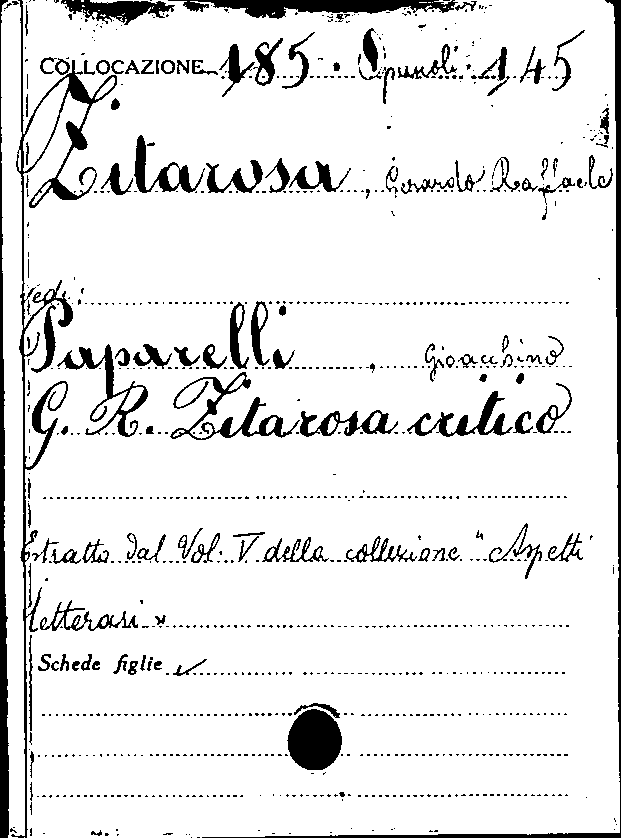 COLLOCAZIONE 185. Opuscoli. 145
Zitarosa, Gerardo Raffaele
vedi:
Paparelli, Gioacchino
G. R. Zitarosa critico
Estratto dal Vol. V della collezione "Aspetti
letterari"
Schede figlie